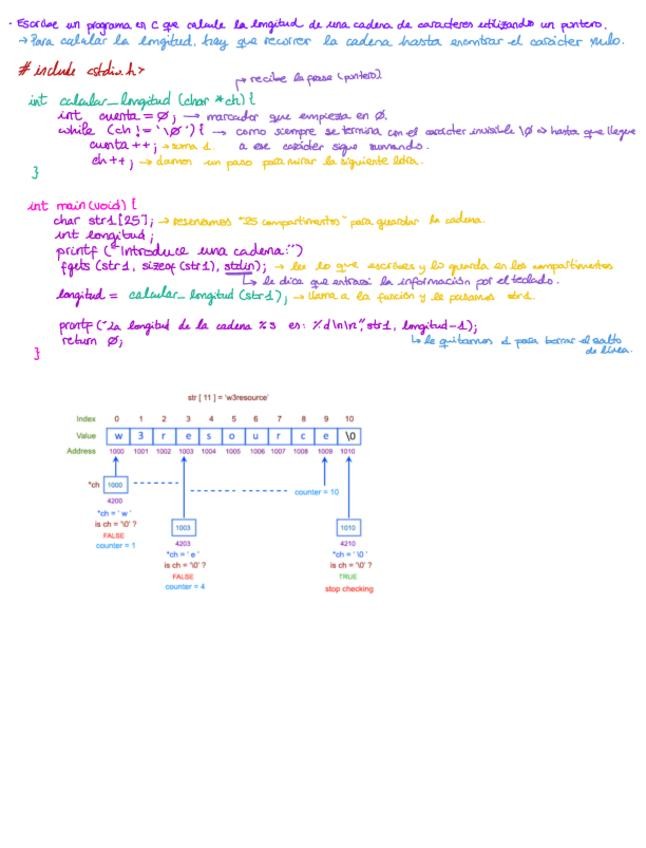 · Escribe un programa en C que calcule la longitud de una cadena de caracteres utilizando un puntero.
→ Para calular la longitud, hay que recorrer la cadena hasta encontrar el carácter nulo.
# include <stdio.h>
↱ recibe la frase (puntero)
int calcular_longitud (char *ch) {
int cuenta = 0; → marcador que empieza en 0.
while (ch != '\0') { → como siempre se termina con el carácter invisible \0 ⇒ hasta que llegue
cuenta ++; → suma 1. a ese carácter sigue sumando.
ch ++; → damos un paso para mirar la siguiente letra.
}
int main (void) {
char str1 [25]; → reservamos "25 compartimentos" para guardar la cadena.
int longitud;
printf ("Introduce una cadena:")
fgets (str1, sizeof (str1), stdin); → lee lo que escribes y lo guarda en los compartimentos
↳ le dice que entrará la información por el teclado.
longitud = calcular_longitud (str1); → llama a la función y le pasamos str1.
printf ("La longitud de la cadena %s es: %d\n\n", str1, longitud-1);
return 0; ↳ le quitamos 1 para borrar el salto
de línea.
}
str [ 11 ] = 'w3resource'
Index 0 1 2 3 4 5 6 7 8 9 10
Value w 3 r e s o u r c e \0
Address 1000 1001 1002 1003 1004 1005 1006 1007 1008 1009 1010
*ch 1000
counter = 10
4200
*ch = ' w '
is ch = '\0' ?
FALSE
counter = 1
1003
4203
*ch = ' e '
is ch = '\0' ?
FALSE
counter = 4
1010
4210
*ch = ' \0 '
is ch = '\0' ?
TRUE
stop checking